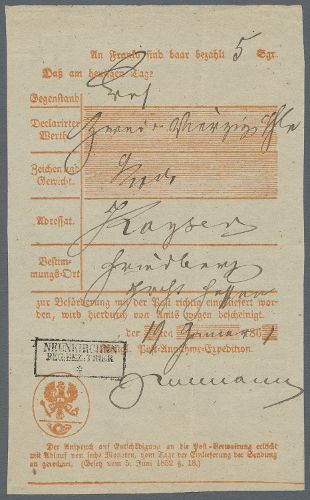 An Franko sind baar bezahlt 5 Sgr.
Daß am heutigen Tage
Gegenstand
Declarirter Werth.
Zwei u Vierzig Thlr
Zeichen und Gewicht.
Adressat.
Kayser
Bestimmungs-Ort
Friedberg
zur Beförderung mit der Post richtig eingeliefert worden,
wird hierdurch von Amts wegen bescheinigt.
der 19 Januar 186
Post-Annahme-Expedition.
NEUNKIRCHEN
REG.BEZ.TRIER
Der Anspruch auf Entschädigung an die Post-Verwaltung erlischt
mit Ablauf von sechs Monaten, vom Tage der Einlieferung der Sendung
an gerechnet. (Gesetz vom 5. Juni 1852 §. 18.)